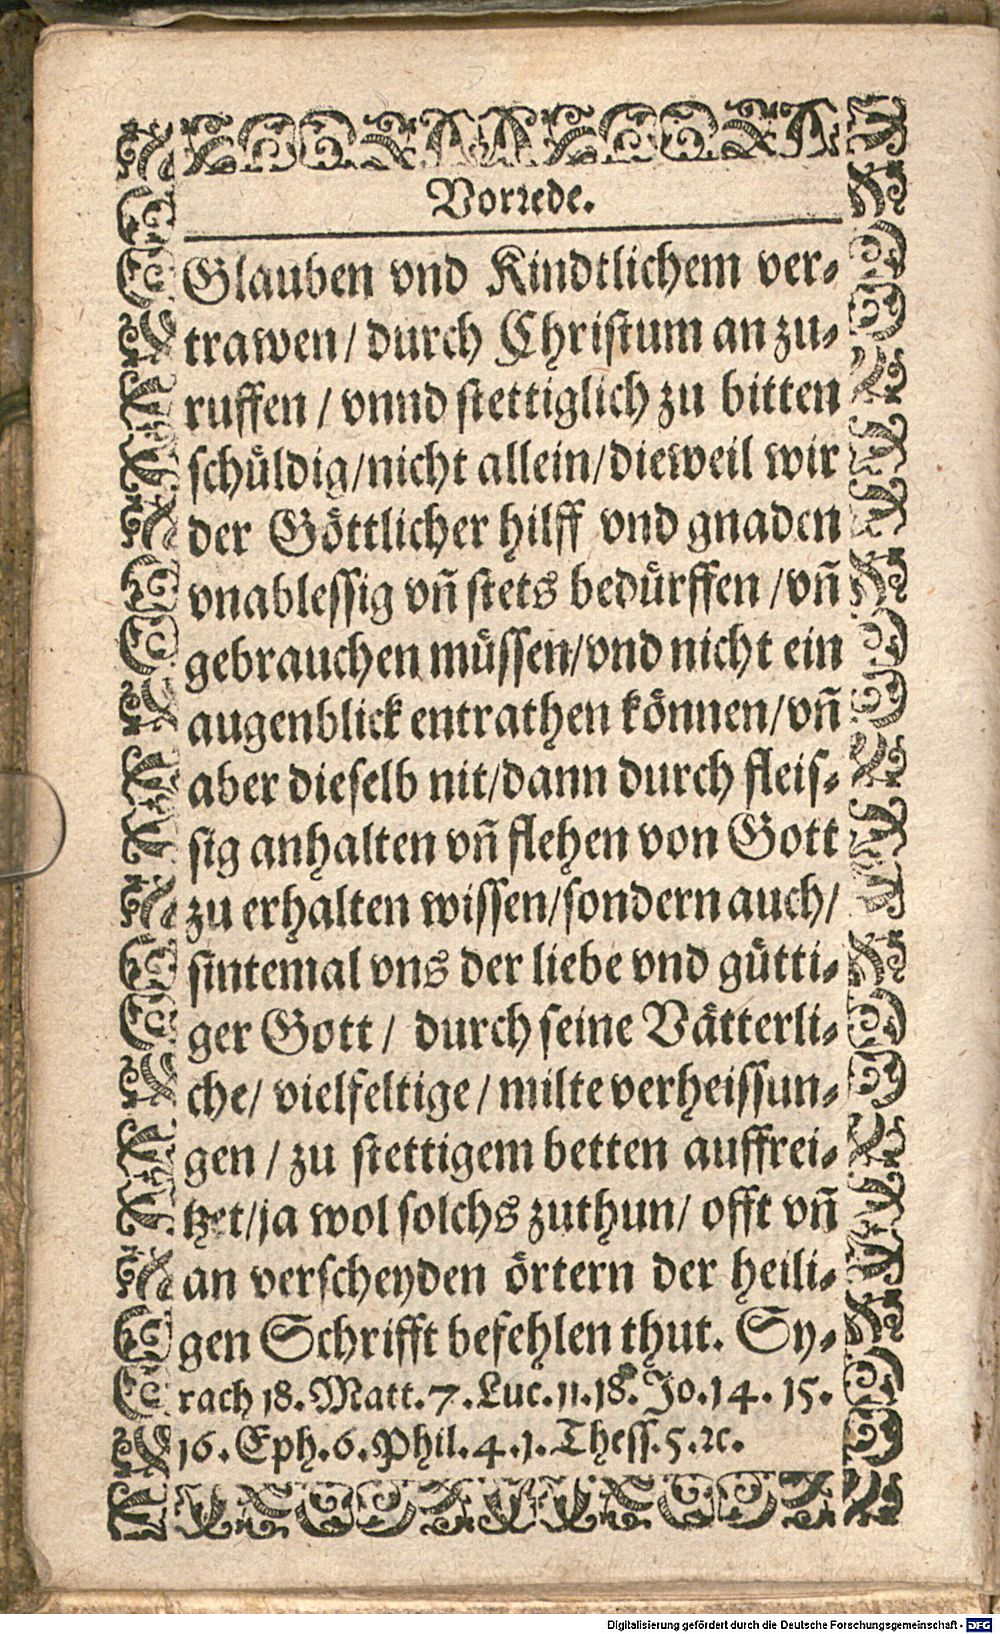 Vorrede.
Glauben vnd Kindtlichem ver-
trawen/ durch Christum an zu-
ruffen / vnnd stettiglich zu bitten
schuͤldig/nicht allein/dieweil wir
der Goͤttlicher hilff vnd gnaden
vnablessig vñ stets beduͤrffen /vñ
gebrauchen muͤssen/vnd nicht ein
augenblick entrathen koͤnnen/vñ
aber dieselb nit/dann durch fleis-
sig anhalten vñ flehen von Gott
zu erhalten wissen/sondern auch/
sintemal vns der liebe vnd guͤtti-
ger Gott/ durch seine Vaͤtterli-
che/ vielfeltige/ milte verheissun-
gen / zu stettigem betten auffrei-
tzet/ja wol solchs zuthun/ offt vñ
an verscheyden oͤrtern der heili-
gen Schrifft befehlen thut. Sy-
rach 18. Matt. 7. Luc. 11. 18. Jo. 14. 15.
16. Eph. 6. Phil. 4. 1. Thess. 5. ꝛc.
Digitalisierung gefördert durch die Deutsche Forschungsgemeinschaft - DFG